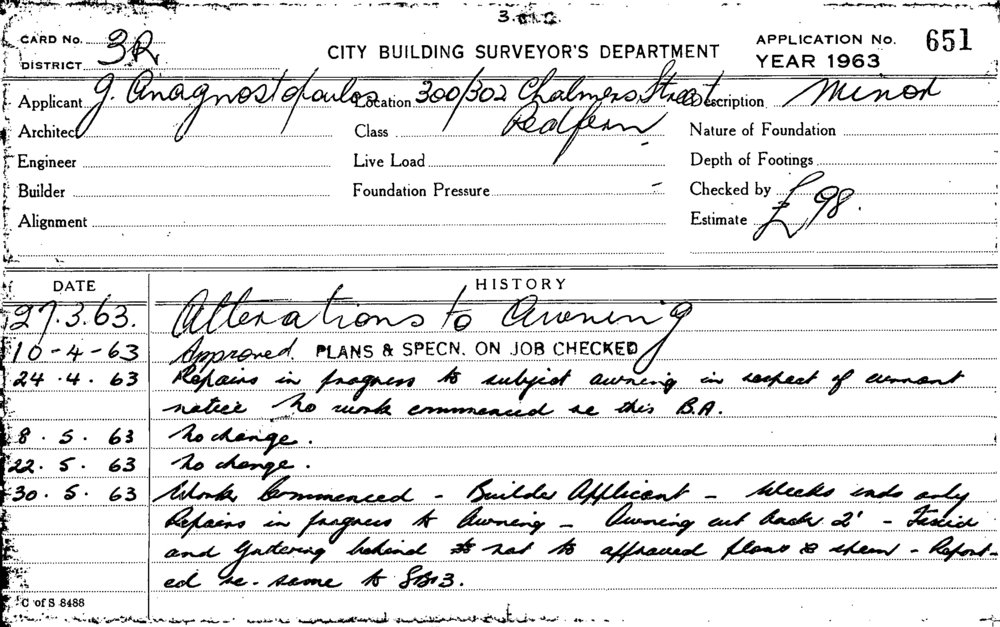 CARD No. 3R
DISTRICT
CITY BUILDING SURVEYOR'S DEPARTMENT
APPLICATION No. 651
YEAR 1963
Applicant J. Anagnostopoulos Location 300/302 Chalmers Street Description Minor
Redfern
Architect Class Nature of Foundation
Engineer Live Load Depth of Footings
Builder Foundation Pressure - Checked by
Alignment Estimate £98.
DATE HISTORY
27.3.63. Alterations to Awning
10-4-63 Approved. PLANS & SPECN. ON JOB CHECKED
24.4.63 Repairs in progress to subject awning in respect of current
notice No work commenced re this B.A.
8.5.63 No change.
22.5.63 No change.
30.5.63 Work Commenced - Builder Applicant - Weeks ends only
Repairs in progress to Awning - Awning cut back 2' - Fascia
and Guttering behind not to approved plans & - Report-
ed re. same to
C of S 8488